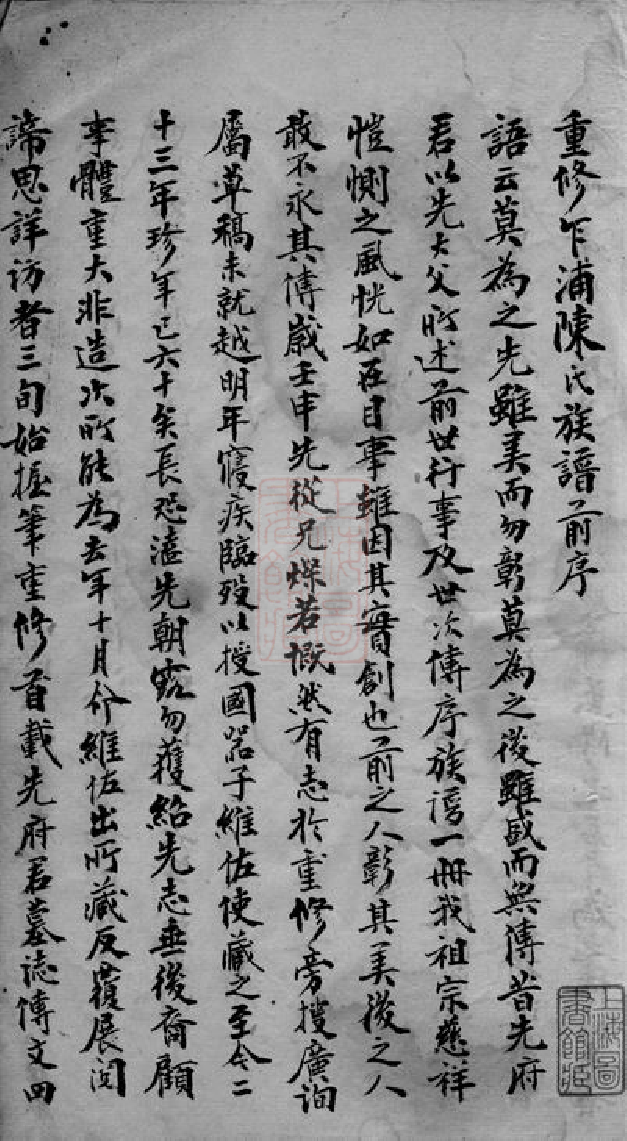 重修乍浦陳氏族譜前序
語云莫為之先雖美而勿彰莫為之後雖盛而無傳昔先府
君以先大父所述前世行事及世次傳序族譜一冊我祖宗慈祥
愷惻之風恍如在目事雖因其實創也前之人彰其美後之人
敢不永其傳嵗壬申先從兄燦若慨然有志於重修旁搜廣詢
屬草稿未就越明年寢疾臨歿以授國器子維佐使藏之至今二
十三年珍年已六十矣長恐溘先朝露勿獲紹先志垂後裔顧
事體重大非造次所能為去年十月介維佐出所藏反覆展閱
諦思詳访者三旬始握筆重修首載先府君墓誌傳文四
上海圖書館藏
上海圖書館藏